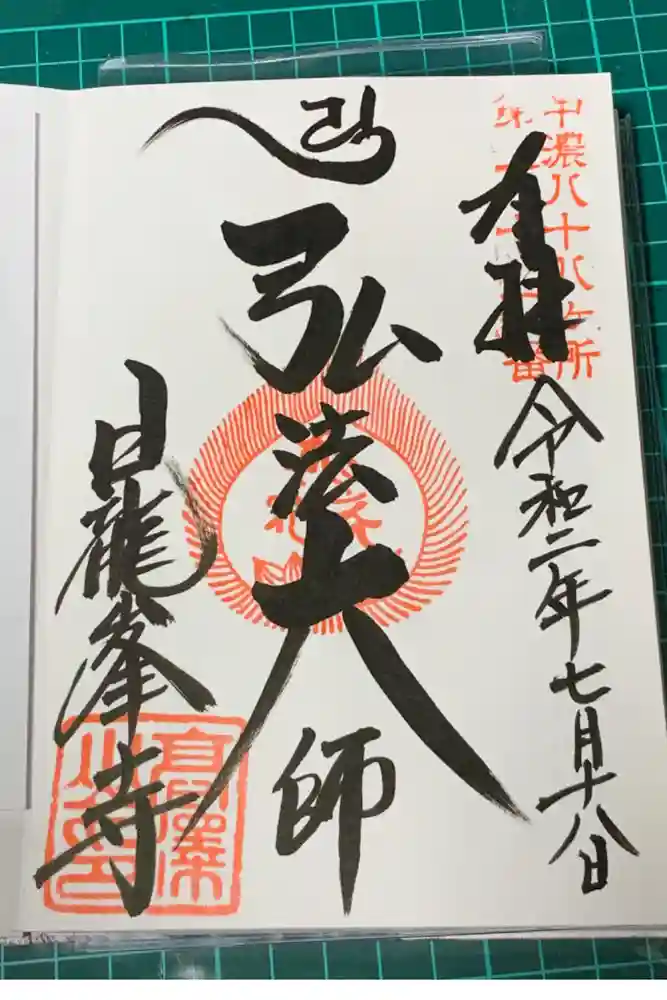 中濃八十八ヶ所
奉拝
令和二年七月十八日
弘法大師
日龍峯寺
高澤